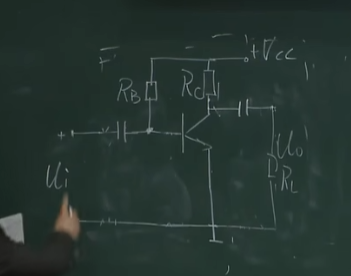 +Vcc
RB
Rc
+
Ui
Uo
RL